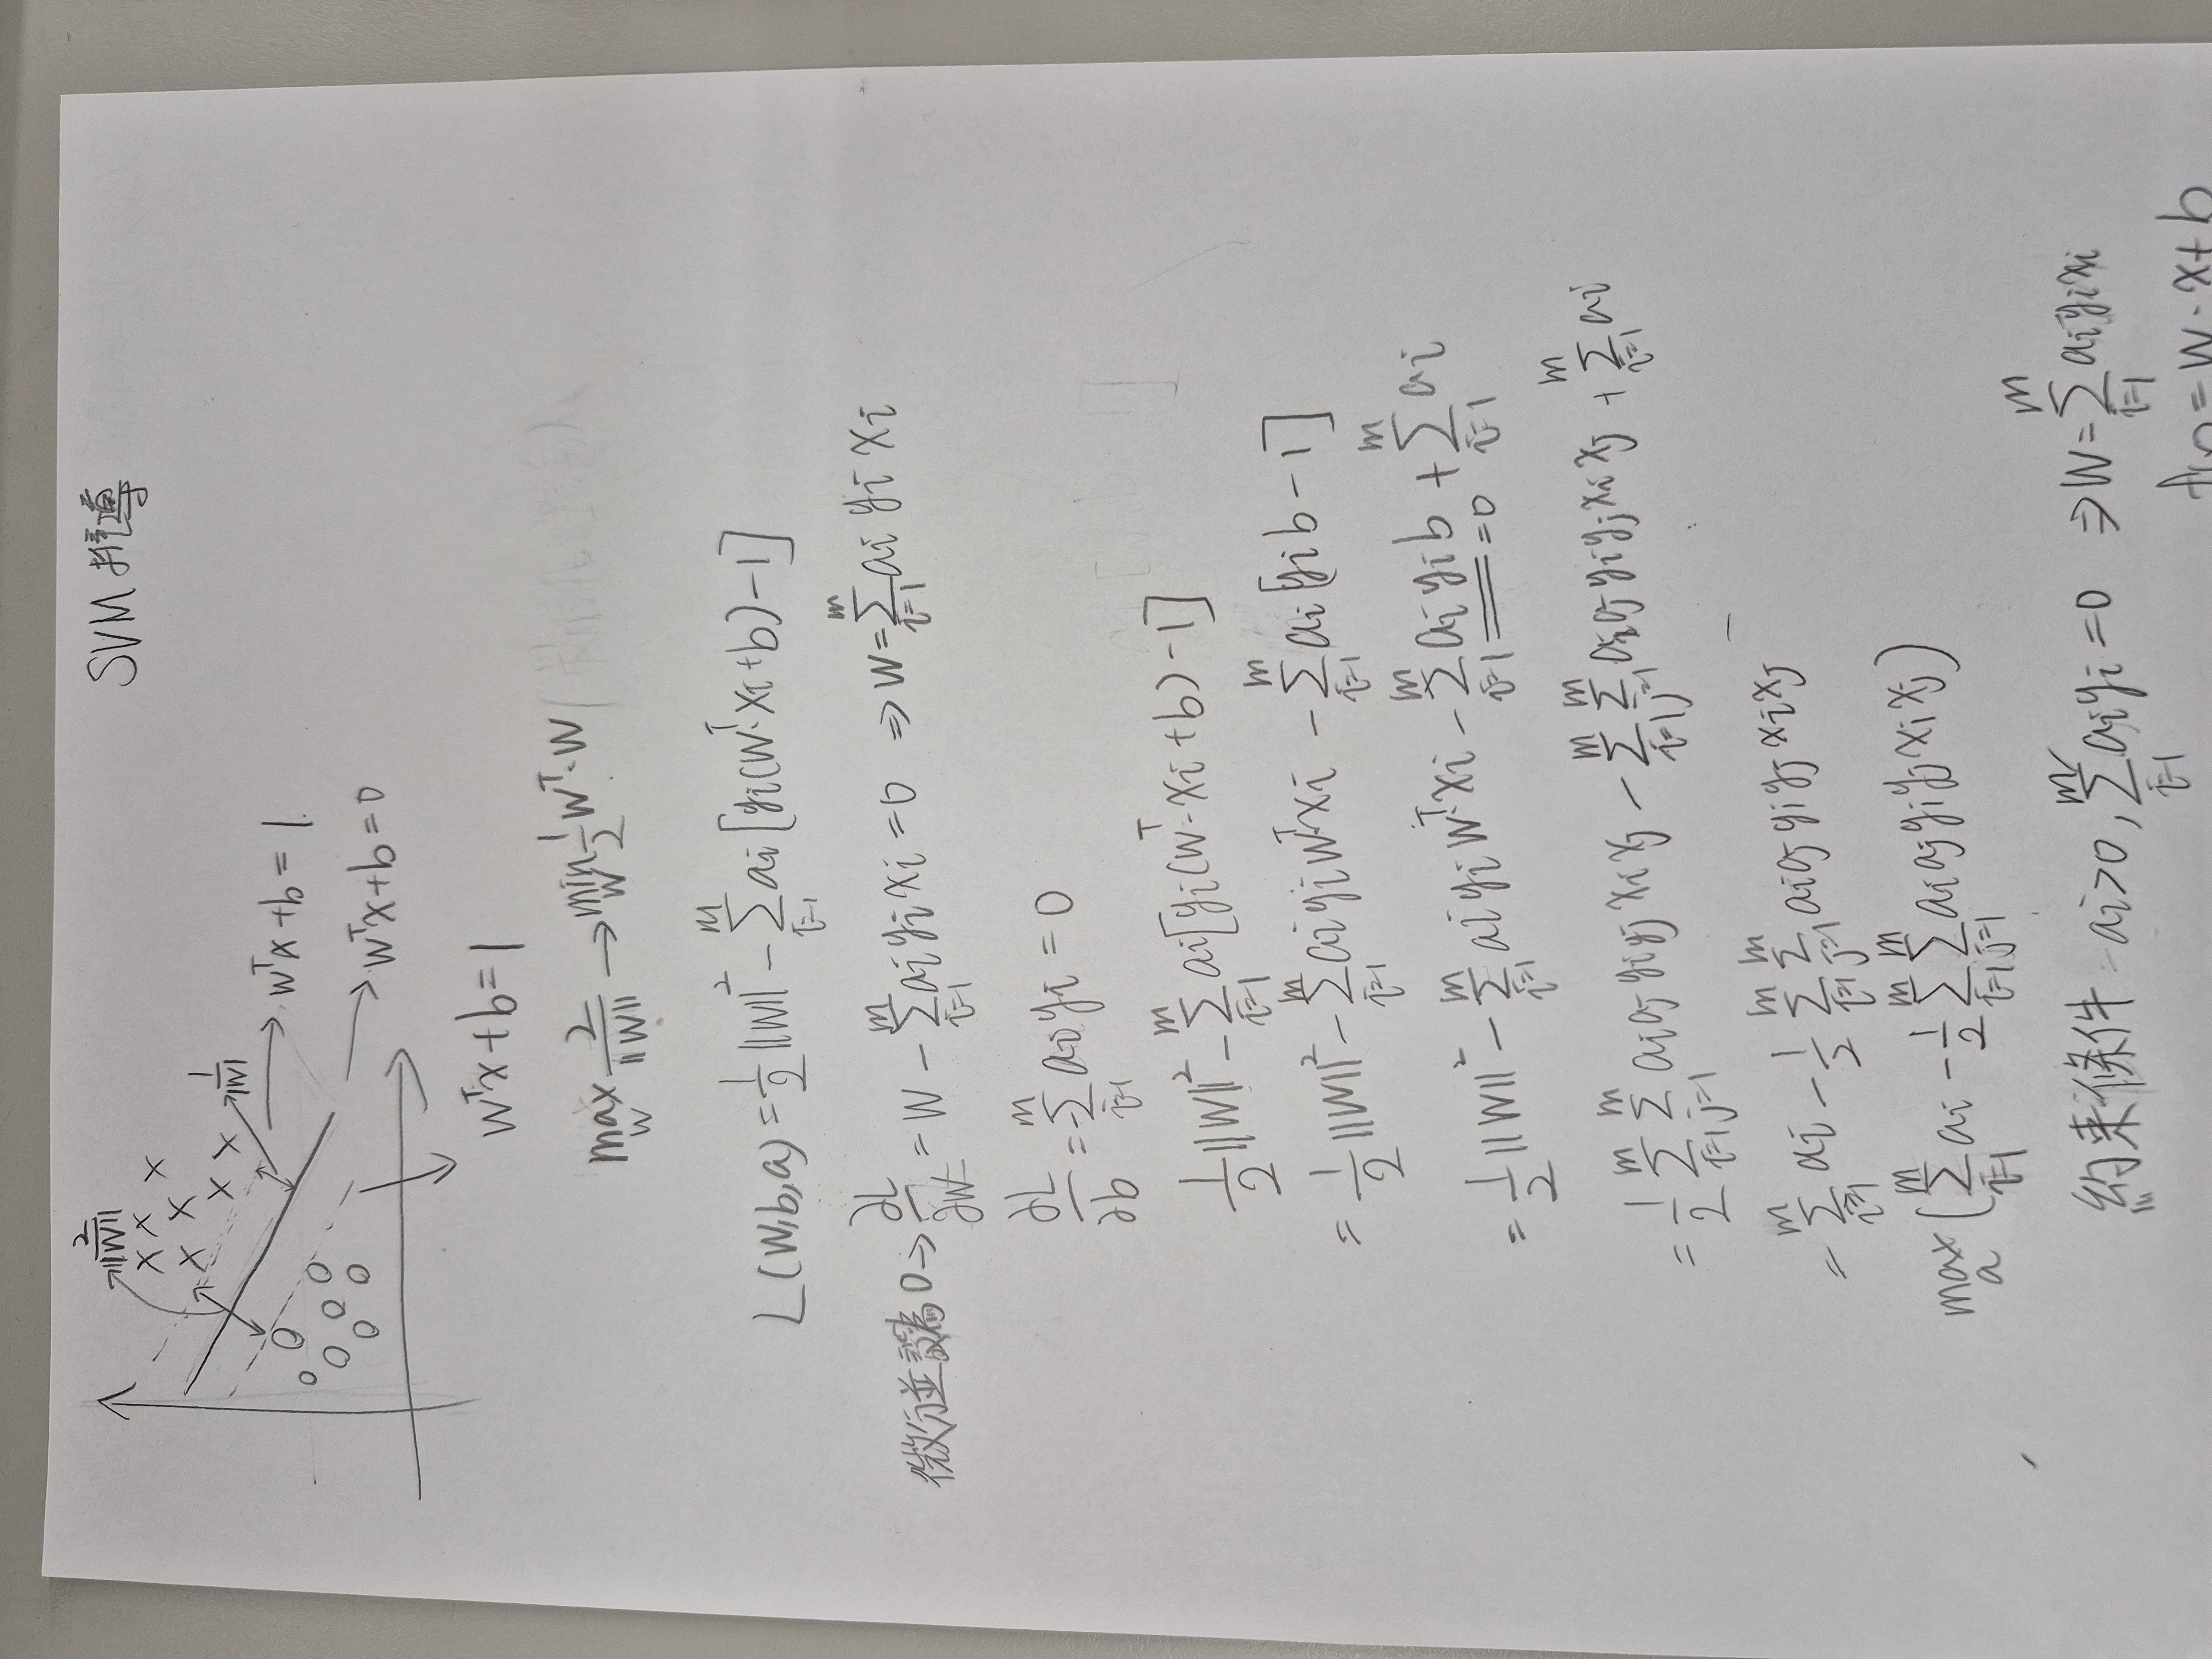 SVM 推導
2/||W||
1/||W||
wᵀx+b=1
wᵀx+b=0
wᵀx+b=1
max_w 2/||W|| → min_w 1/2 wᵀ·w
L(w,b,a) = 1/2 ||W||² - Σ_{i=1}^{m} ai [yi(wᵀ·xi+b)-1]
微分並設為0 → ∂L/∂w = w - Σ_{i=1}^{m} ai yi xi = 0 ⇒ w = Σ_{i=1}^{m} ai yi xi
∂L/∂b = -Σ_{i=1}^{m} ai yi = 0
1/2 ||W||² - Σ_{i=1}^{m} ai[yi(wᵀ·xi+b)-1]
= 1/2 ||W||² - Σ_{i=1}^{m} ai yi wᵀ·xi - Σ_{i=1}^{m} ai [yi b - 1]
= 1/2 ||W||² - Σ_{i=1}^{m} ai yi wᵀ·xi - Σ_{i=1}^{m} ai yi b + Σ_{i=1}^{m} ai
=0
= 1/2 Σ_{i=1}^{m} Σ_{j=1}^{m} ai aj yi yj xi xj - Σ_{i=1}^{m} Σ_{j=1}^{m} ai aj yi yj xi xj + Σ_{i=1}^{m} ai
= Σ_{i=1}^{m} ai - 1/2 Σ_{i=1}^{m} Σ_{j=1}^{m} ai aj yi yj xi xj
max_a (Σ_{i=1}^{m} ai - 1/2 Σ_{i=1}^{m} Σ_{j=1}^{m} ai aj yi yj xi xj)
約束條件 ai>0, Σ_{i=1}^{m} ai yi = 0 ⇒ w = Σ_{i=1}^{m} ai yi xi
= w·x+b